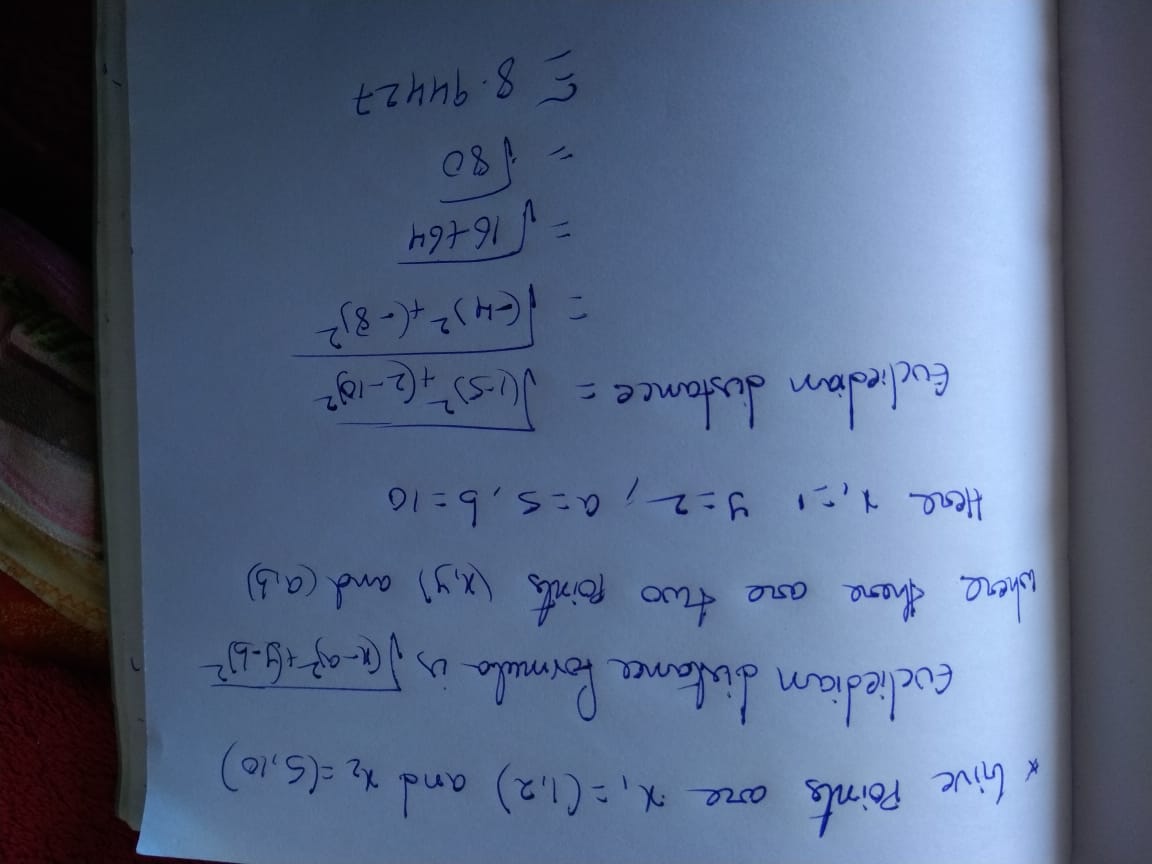 * Give Points are x₁ = (1,2) and x₂ = (5,10)
Eucliedian distance formula is √(x-a)²+(y-b)²
where there are two points (x,y) and (a,b)
Here x,=1 y=2, a=5, b=10
Eucliedian distance = √(1-5)²+(2-10)²
= √(-4)²+(-8)²
= √16+64
= √80
≅ 8.94427